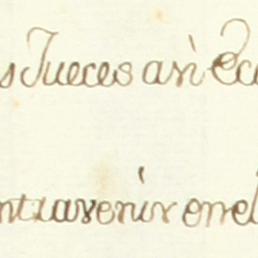 s Jueces asi Ecc
ntravenir en el